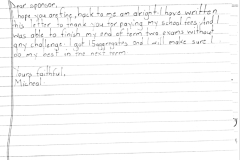 Dear sponsor,
I hope you are fine, back to me am alright. I have written
this letter to thank you for paying my school fees, And I
was able to finish my end of term two exams without
any challenge. I got 15 aggregates and I will make sure I
do my best in the next term.
Yours faithful,
Micheal